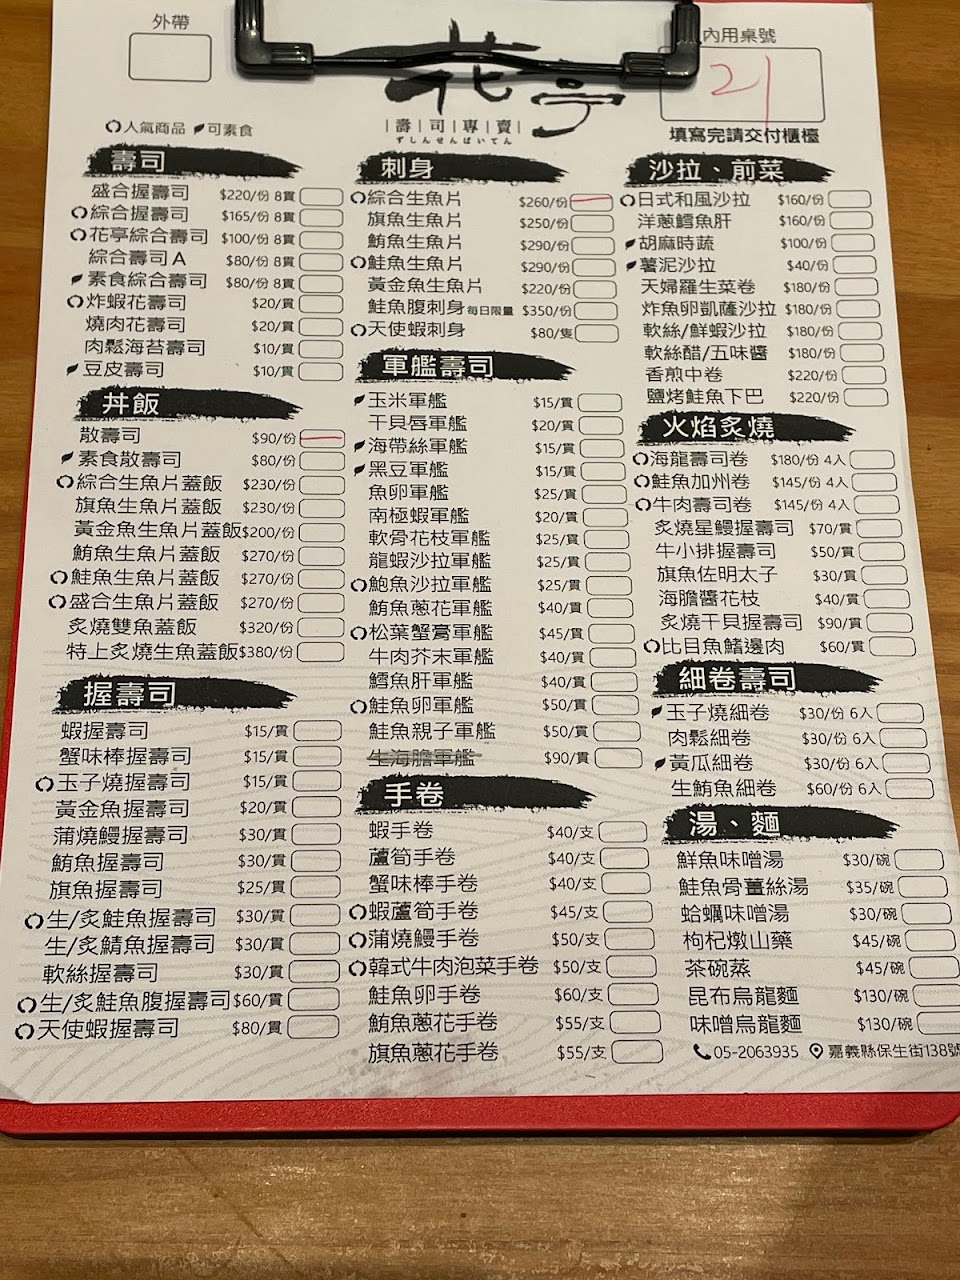 外帶
花亭
|壽|司|專|賣|
ずしんせんばいてん
內用桌號
21
填寫完請交付櫃檯
人氣商品 可素食
壽司
盛合握壽司 $220/份 8貫
綜合握壽司 $165/份 8貫
花亭綜合壽司 $100/份 8貫
綜合壽司A $80/份 8貫
素食綜合壽司 $80/份 8貫
炸蝦花壽司 $20/貫
燒肉花壽司 $20/貫
肉鬆海苔壽司 $10/貫
豆皮壽司 $10/貫
丼飯
散壽司 $90/份
素食散壽司 $80/份
綜合生魚片蓋飯 $230/份
旗魚生魚片蓋飯 $230/份
黃金魚生魚片蓋飯 $200/份
鮪魚生魚片蓋飯 $270/份
鮭魚生魚片蓋飯 $270/份
盛合生魚片蓋飯 $270/份
炙燒雙魚蓋飯 $320/份
特上炙燒生魚蓋飯 $380/份
握壽司
蝦握壽司 $15/貫
蟹味棒握壽司 $15/貫
玉子燒握壽司 $15/貫
黃金魚握壽司 $20/貫
蒲燒鰻握壽司 $30/貫
鮪魚握壽司 $30/貫
旗魚握壽司 $25/貫
生/炙鮭魚握壽司 $30/貫
生/炙鯖魚握壽司 $30/貫
軟絲握壽司 $30/貫
生/炙鮭魚腹握壽司 $60/貫
天使蝦握壽司 $80/貫
刺身
綜合生魚片 $260/份
旗魚生魚片 $250/份
鮪魚生魚片 $290/份
鮭魚生魚片 $290/份
黃金魚生魚片 $220/份
鮭魚腹刺身 每日限量 $350/份
天使蝦刺身 $80/隻
軍艦壽司
玉米軍艦 $15/貫
干貝唇軍艦 $20/貫
海帶絲軍艦 $15/貫
黑豆軍艦 $15/貫
魚卵軍艦 $25/貫
南極蝦軍艦 $20/貫
軟骨花枝軍艦 $25/貫
龍蝦沙拉軍艦 $25/貫
鮑魚沙拉軍艦 $25/貫
鮪魚蔥花軍艦 $40/貫
松葉蟹膏軍艦 $45/貫
牛肉芥末軍艦 $40/貫
鱈魚肝軍艦 $40/貫
鮭魚卵軍艦 $50/貫
鮭魚親子軍艦 $50/貫
生海膽軍艦 $90/貫
手卷
蝦手卷 $40/支
蘆筍手卷 $40/支
蟹味棒手卷 $40/支
蝦蘆筍手卷 $45/支
蒲燒鰻手卷 $50/支
韓式牛肉泡菜手卷 $50/支
鮭魚卵手卷 $60/支
鮪魚蔥花手卷 $55/支
旗魚蔥花手卷 $55/支
沙拉、前菜
日式和風沙拉 $160/份
洋蔥鱈魚肝 $160/份
胡麻時蔬 $100/份
薯泥沙拉 $40/份
天婦羅生菜卷 $180/份
炸魚卵凱薩沙拉 $180/份
軟絲/鮮蝦沙拉 $180/份
軟絲醋/五味醬 $180/份
香煎中卷 $220/份
鹽烤鮭魚下巴 $220/份
火焰炙燒
海龍壽司卷 $180/份 4入
鮭魚加州卷 $145/份 4入
牛肉壽司卷 $145/份 4入
炙燒星鰻握壽司 $70/貫
牛小排握壽司 $50/貫
旗魚佐明太子 $30/貫
海膽醬花枝 $40/貫
炙燒干貝握壽司 $90/貫
比目魚鰭邊肉 $60/貫
細卷壽司
玉子燒細卷 $30/份 6入
肉鬆細卷 $30/份 6入
黃瓜細卷 $30/份 6入
生鮪魚細卷 $60/份 6入
湯、麵
鮮魚味噌湯 $30/碗
鮭魚骨薑絲湯 $35/碗
蛤蠣味噌湯 $30/碗
枸杞燉山藥 $45/碗
茶碗蒸 $45/碗
昆布烏龍麵 $130/碗
味噌烏龍麵 $130/碗
05-2063935 嘉義縣保生街138號